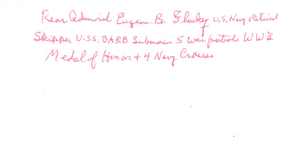 Rear Admiral Eugene B. Fluckey U.S. Navy Retired
Skipper U.S.S. BARB Submarine 5 War patrols WW II
Medal of Honor + 4 Navy Crosses